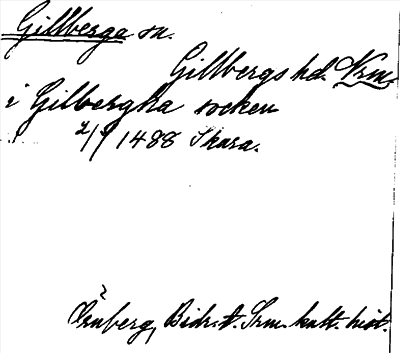 Gillberga sn.
Gillbergs hd. Vrm.
i Gilbergha socken
2/1 1488 Skara.
Örnberg, Bidr. t. Srm. kult. hist.